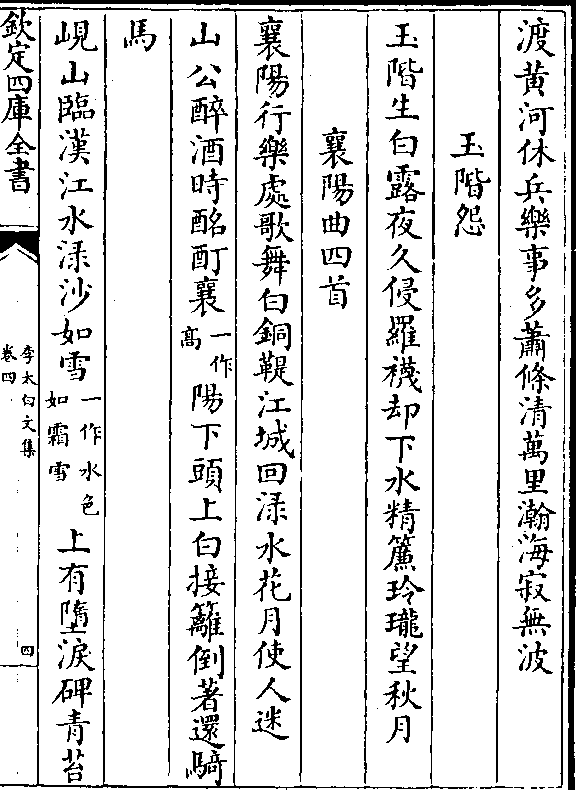 渡黃河休兵樂事多蕭條清萬里瀚海寂無波
玉階怨
玉階生白露夜久侵羅襪却下水精簾玲瓏望秋月
襄陽曲四首
襄陽行樂處歌舞白銅鞮江城回渌水花月使人迷
山公醉酒時酩酊襄一作高陽下頭上白接籬倒著還騎
馬
峴山臨漢江水渌沙如雪一作水色如霜雪上有墮淚碑青苔
欽定四庫全書
李太白文集
卷四
四